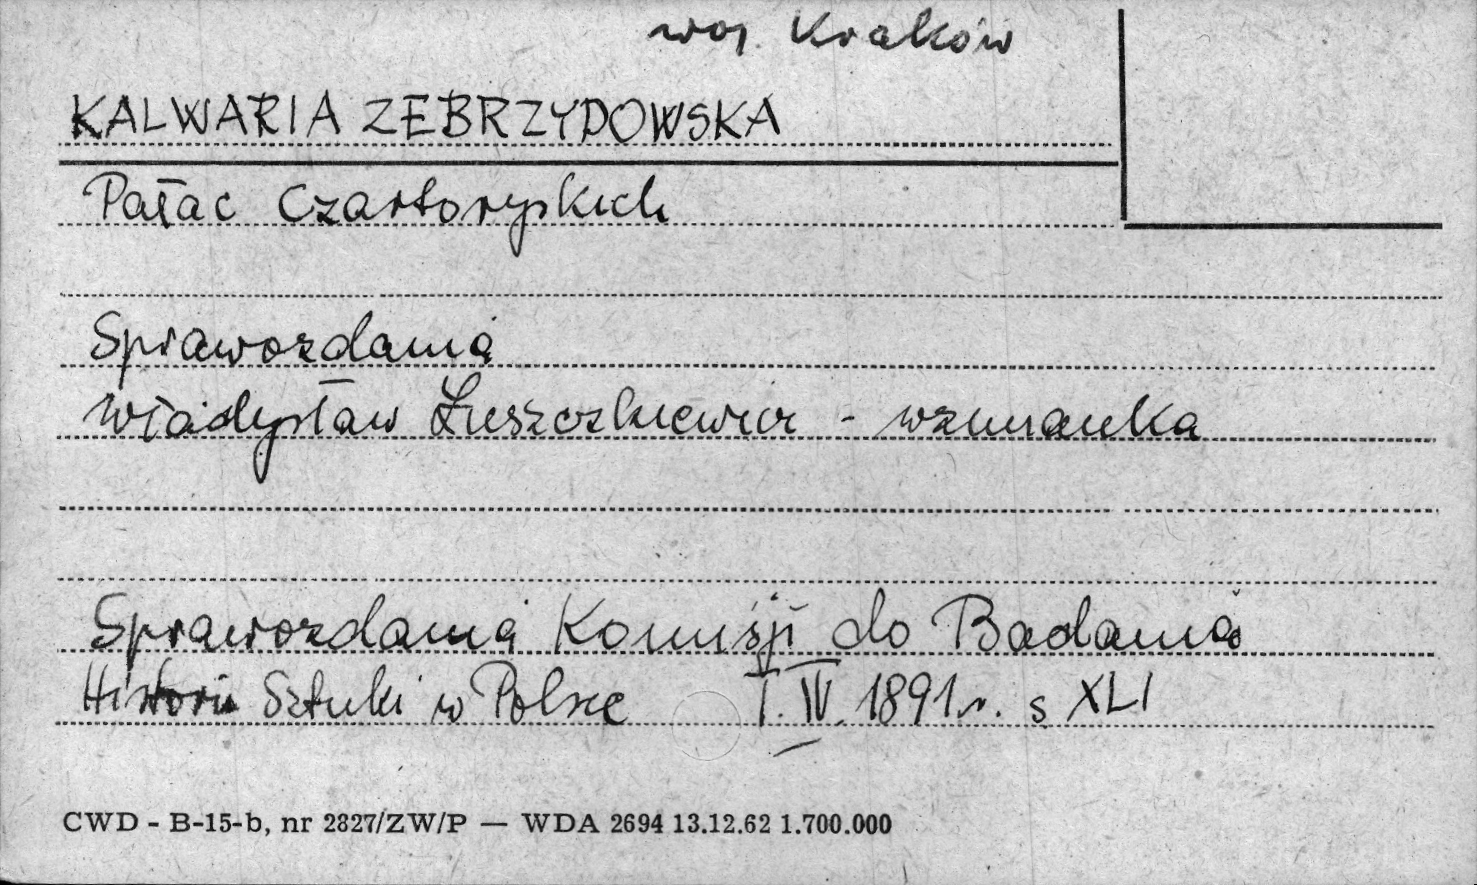 woj. Kraków
KALWARIA ZEBRZYDOWSKA
Pałac Czartoryskich
Sprawozdania
Władysław Łuszczkiewicz - wzmianka
Sprawozdania Komisji do Badania
Historii Sztuki w Polsce T. IV. 1891 r. s XLI
CWD - B-15-b, nr 2827/ZW/P — WDA 2694 13.12.62 1.700.000